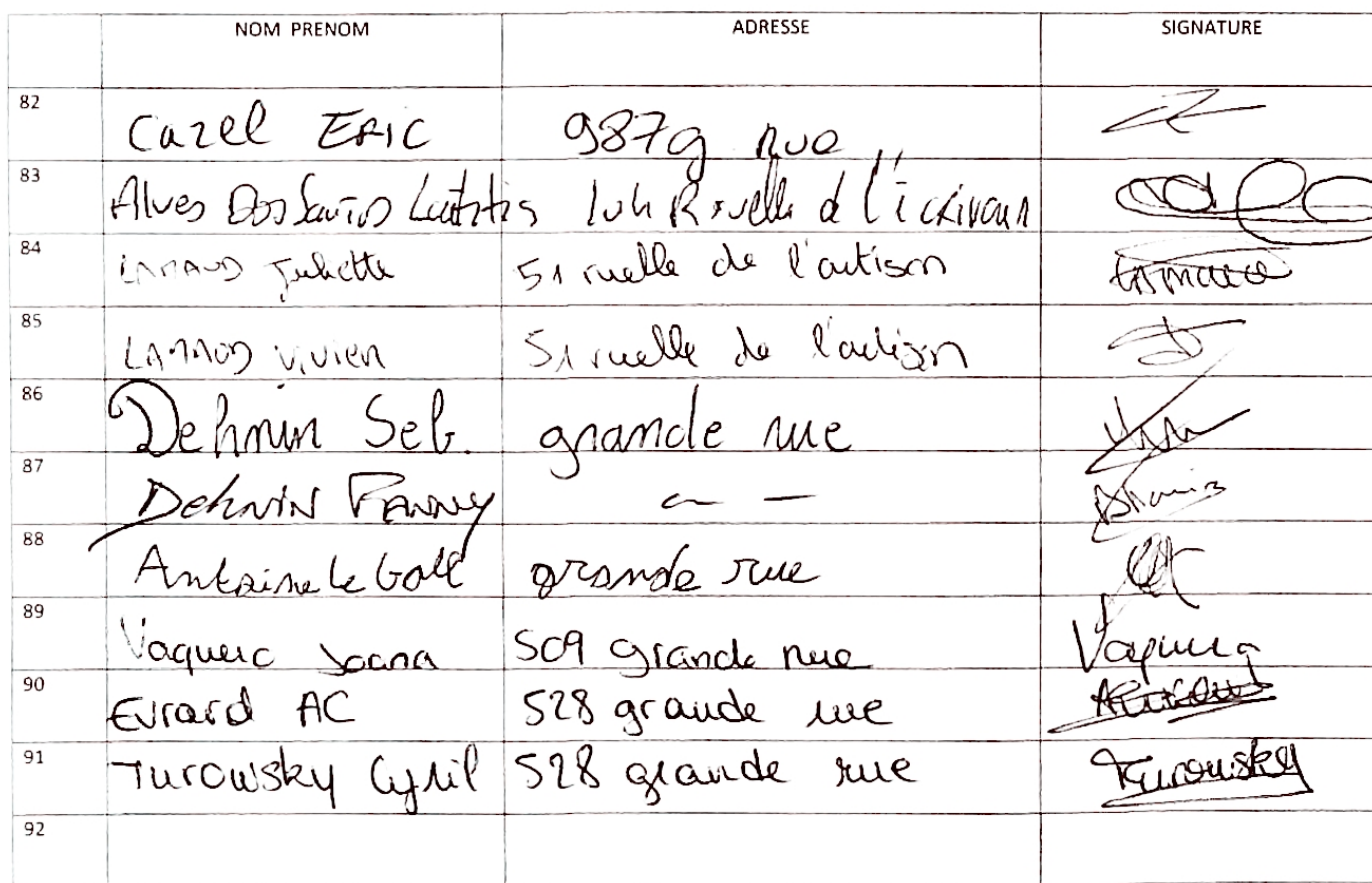 NOM PRENOM ADRESSE SIGNATURE
82 Cazel ERIC 987 g rue
83 Alves Dos Santos Ruelle d l'
84 Juliette 51 ruelle de l'artison
85 Vivien 51 ruelle de l'artison
86 Dehnin Seb. grande rue
87 Dehnin Fanny — —
88 Antoine Le Goll grande rue
89 Joana 509 grande rue
90 Evrard AC 528 grande rue
91 Turowsky Cyril 528 grande rue Turowsky
92